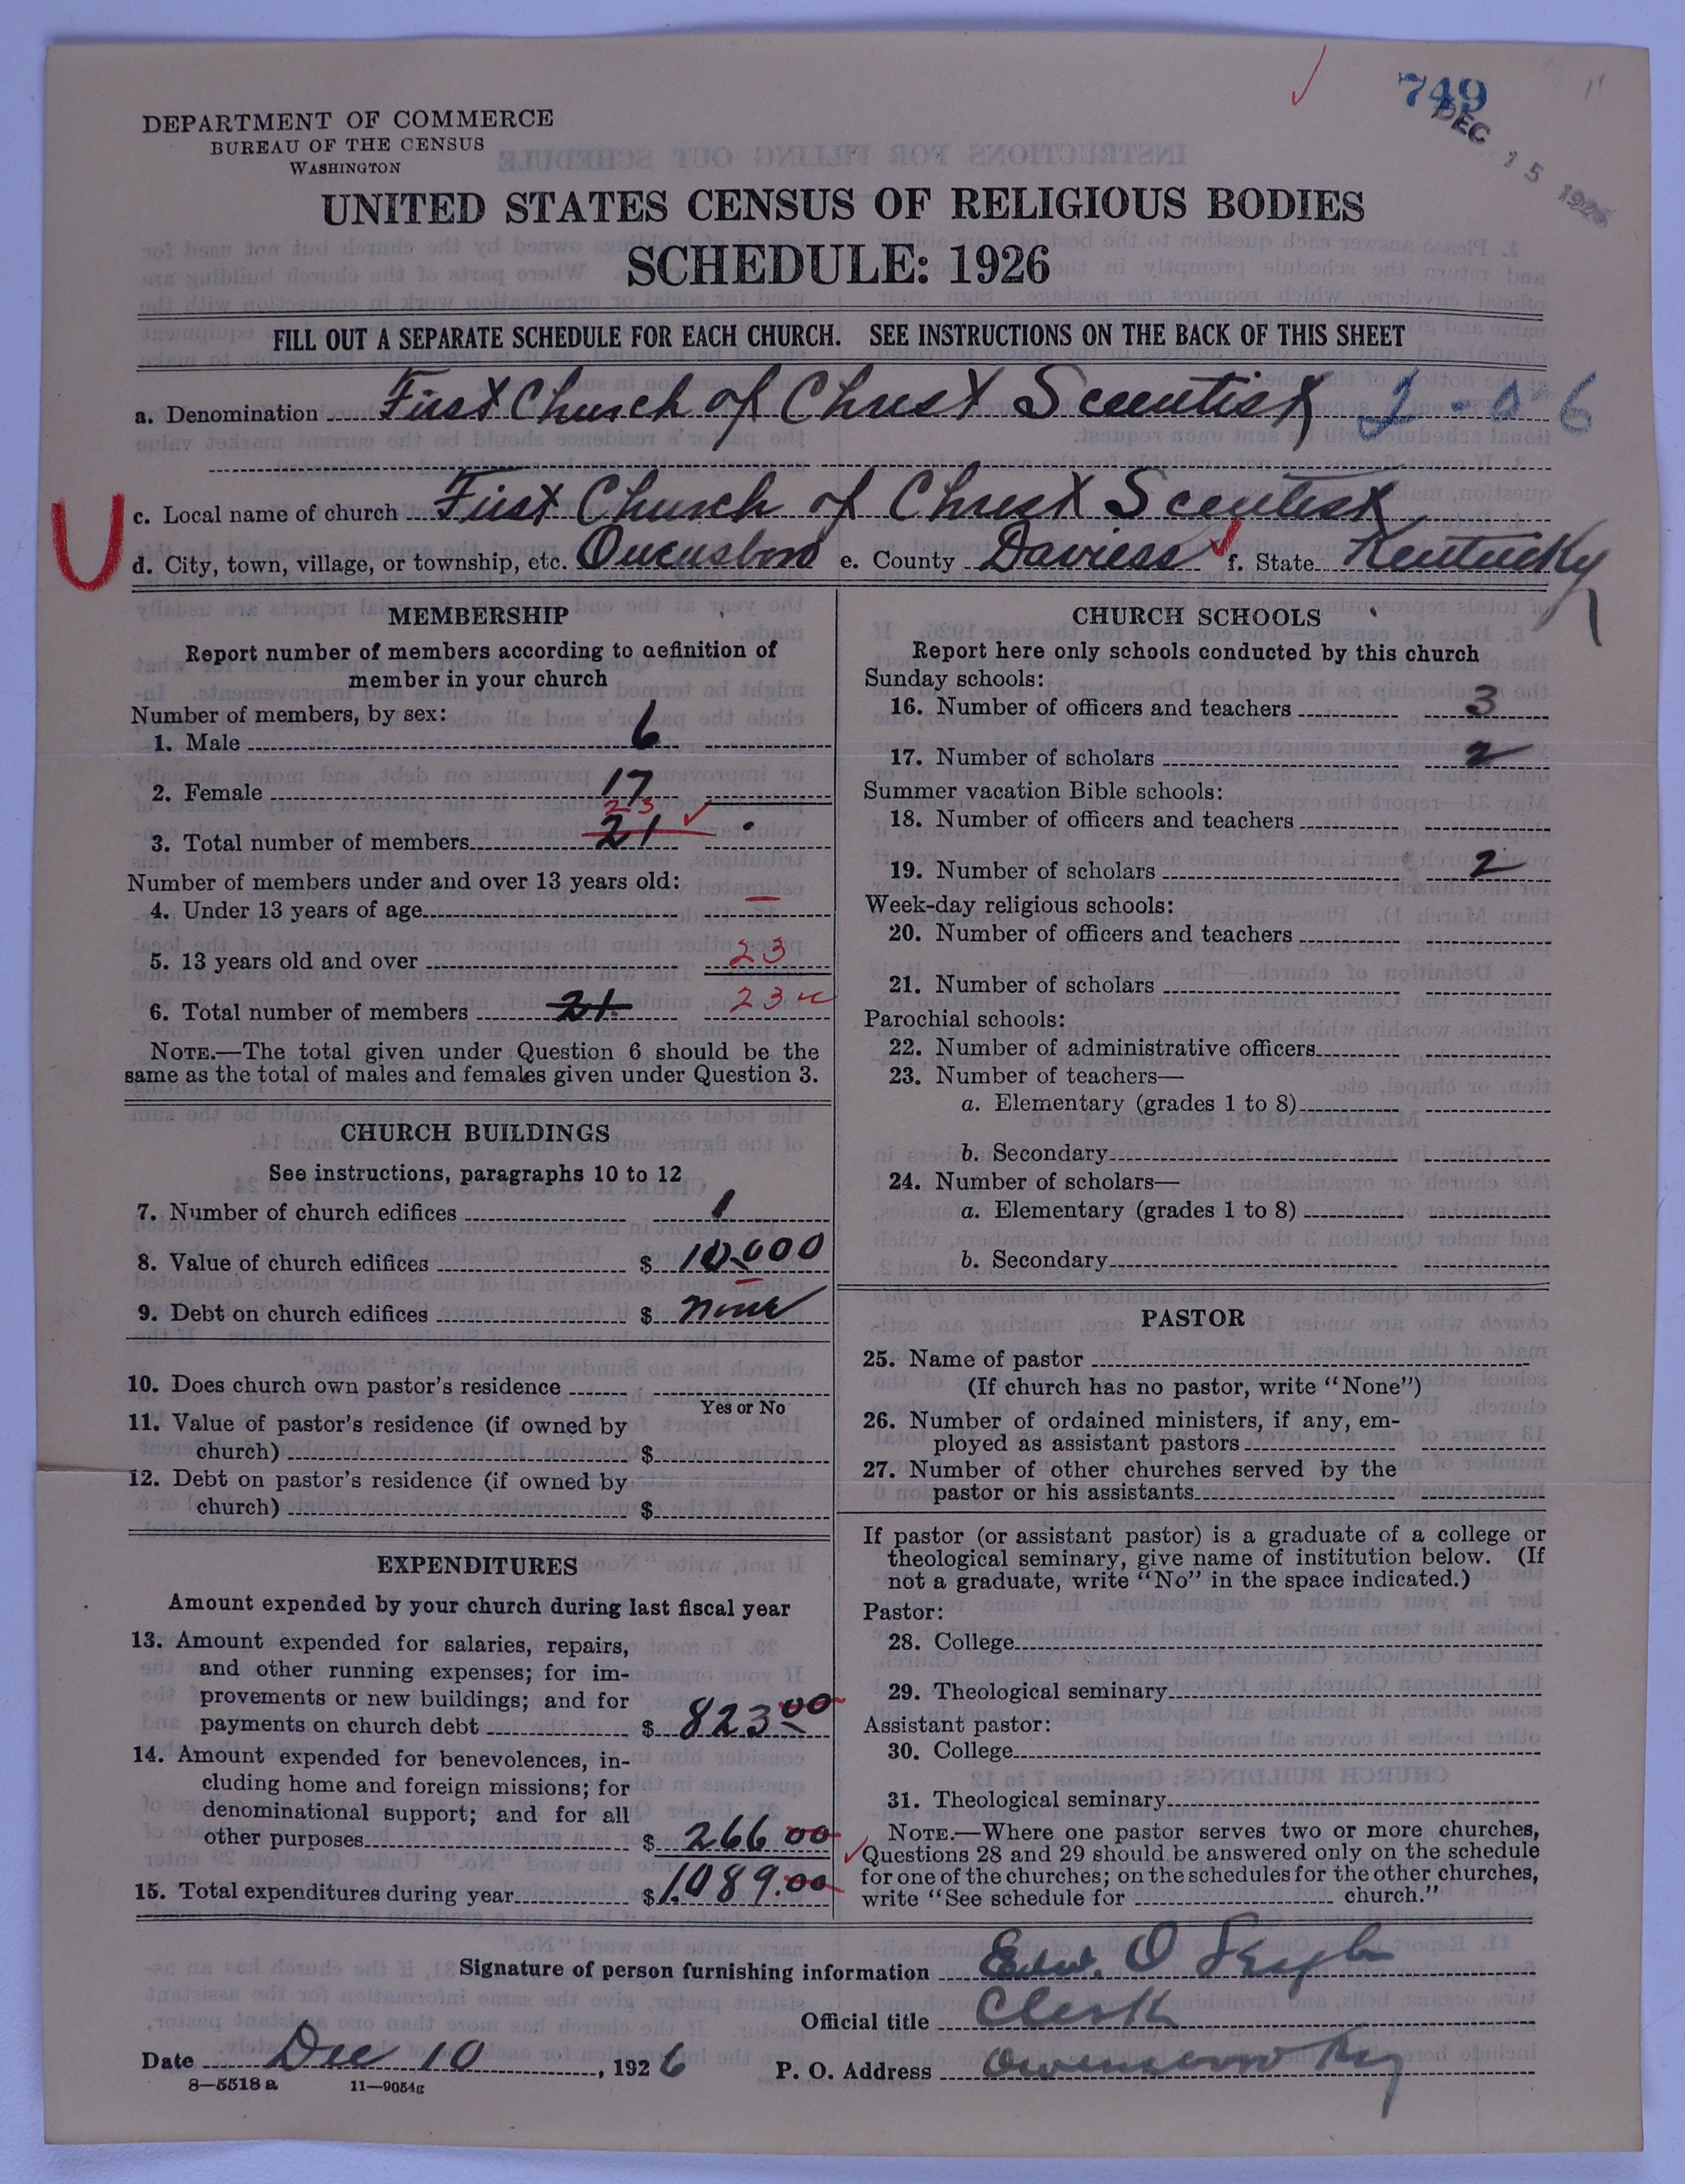 749
DEC 15 1926
DEPARTMENT OF COMMERCE
BUREAU OF THE CENSUS
WASHINGTON
UNITED STATES CENSUS OF RELIGIOUS BODIES
SCHEDULE: 1926
FILL OUT A SEPARATE SCHEDULE FOR EACH CHURCH. SEE INSTRUCTIONS ON THE BACK OF THIS SHEET
a. Denomination First Church of Christ Scientist 2-0 6
U
c. Local name of church First Church of Christ Scientist
d. City, town, village, or township, etc. Owensboro e. County Daviess f. State Kentucky
MEMBERSHIP
Report number of members according to definition of
member in your church
Number of members, by sex:
1. Male 6
2. Female 17
23
3. Total number of members 21
Number of members under and over 13 years old:
4. Under 13 years of age —
5. 13 years old and over 23
6. Total number of members 21 23
NOTE.—The total given under Question 6 should be the
same as the total of males and females given under Question 3.
CHURCH BUILDINGS
See instructions, paragraphs 10 to 12
7. Number of church edifices 1
8. Value of church edifices $ 10,000
9. Debt on church edifices $ none
10. Does church own pastor's residence
Yes or No
11. Value of pastor's residence (if owned by
church) $
12. Debt on pastor's residence (if owned by
church) $
EXPENDITURES
Amount expended by your church during last fiscal year
13. Amount expended for salaries, repairs,
and other running expenses; for im-
provements or new buildings; and for
payments on church debt $ 823 00
14. Amount expended for benevolences, in-
cluding home and foreign missions; for
denominational support; and for all
other purposes $ 266 00
15. Total expenditures during year $ 1089.00
CHURCH SCHOOLS
Report here only schools conducted by this church
Sunday schools:
16. Number of officers and teachers 3
17. Number of scholars 2
Summer vacation Bible schools:
18. Number of officers and teachers
19. Number of scholars 2
Week-day religious schools:
20. Number of officers and teachers
21. Number of scholars
Parochial schools:
22. Number of administrative officers
23. Number of teachers—
a. Elementary (grades 1 to 8)
b. Secondary
24. Number of scholars—
a. Elementary (grades 1 to 8)
b. Secondary
PASTOR
25. Name of pastor
(If church has no pastor, write "None")
26. Number of ordained ministers, if any, em-
ployed as assistant pastors
27. Number of other churches served by the
pastor or his assistants
If pastor (or assistant pastor) is a graduate of a college or
theological seminary, give name of institution below. (If
not a graduate, write "No" in the space indicated.)
Pastor:
28. College
29. Theological seminary
Assistant pastor:
30. College
31. Theological seminary
NOTE.—Where one pastor serves two or more churches,
Questions 28 and 29 should be answered only on the schedule
for one of the churches; on the schedules for the other churches,
write "See schedule for church."
Signature of person furnishing information Edw. O
Official title Clerk
Date Dec 10, 1926 P. O. Address Owensboro Ky
8—5518 a 11—9054g